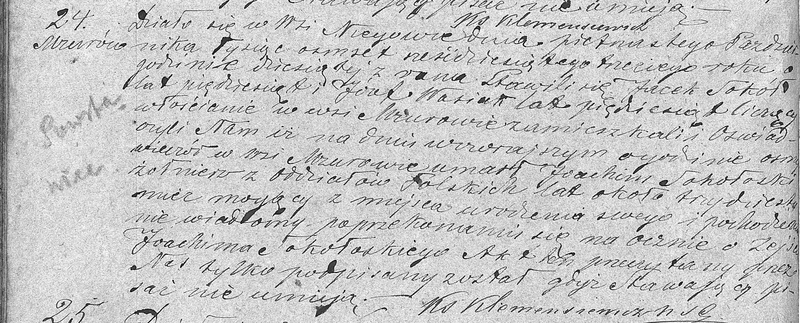 pisać nie umieją.
Ks Klemensiewicz
24.
Mzurów
Działo się w Wsi Niegowie dnia piętnastego Paździer
nika tysiąc ośmset sześćdziesiątego trzeciego roku o
godzinie dziesiątej z rana Stawili się Jacek Sokół
lat pięćdziesiąt i Józef Wasiak lat pięćdziesiąt liczący
włościanie w wsi Mzurowie zamieszkali, Oświad
czyli Nam iż na dniu wczorajszym o godzinie osmej
wieczór w wsi Mzurowie umarł Joachim Sokołoski
żołnierz z oddziałów Polskich lat około trzydzieści
mieć mogący z miejsca urodzenia swego i pochodzenia
nie wiadomy poprzekonaniu się na ocznie o Zejściu
Joachima Sokołoskiego Akt ten przeczytany przez
Nas tylko podpisany został gdyż Stawający pi-
sać nie umieją.
Ks Klemensiewicz
Powsta
niec
25.